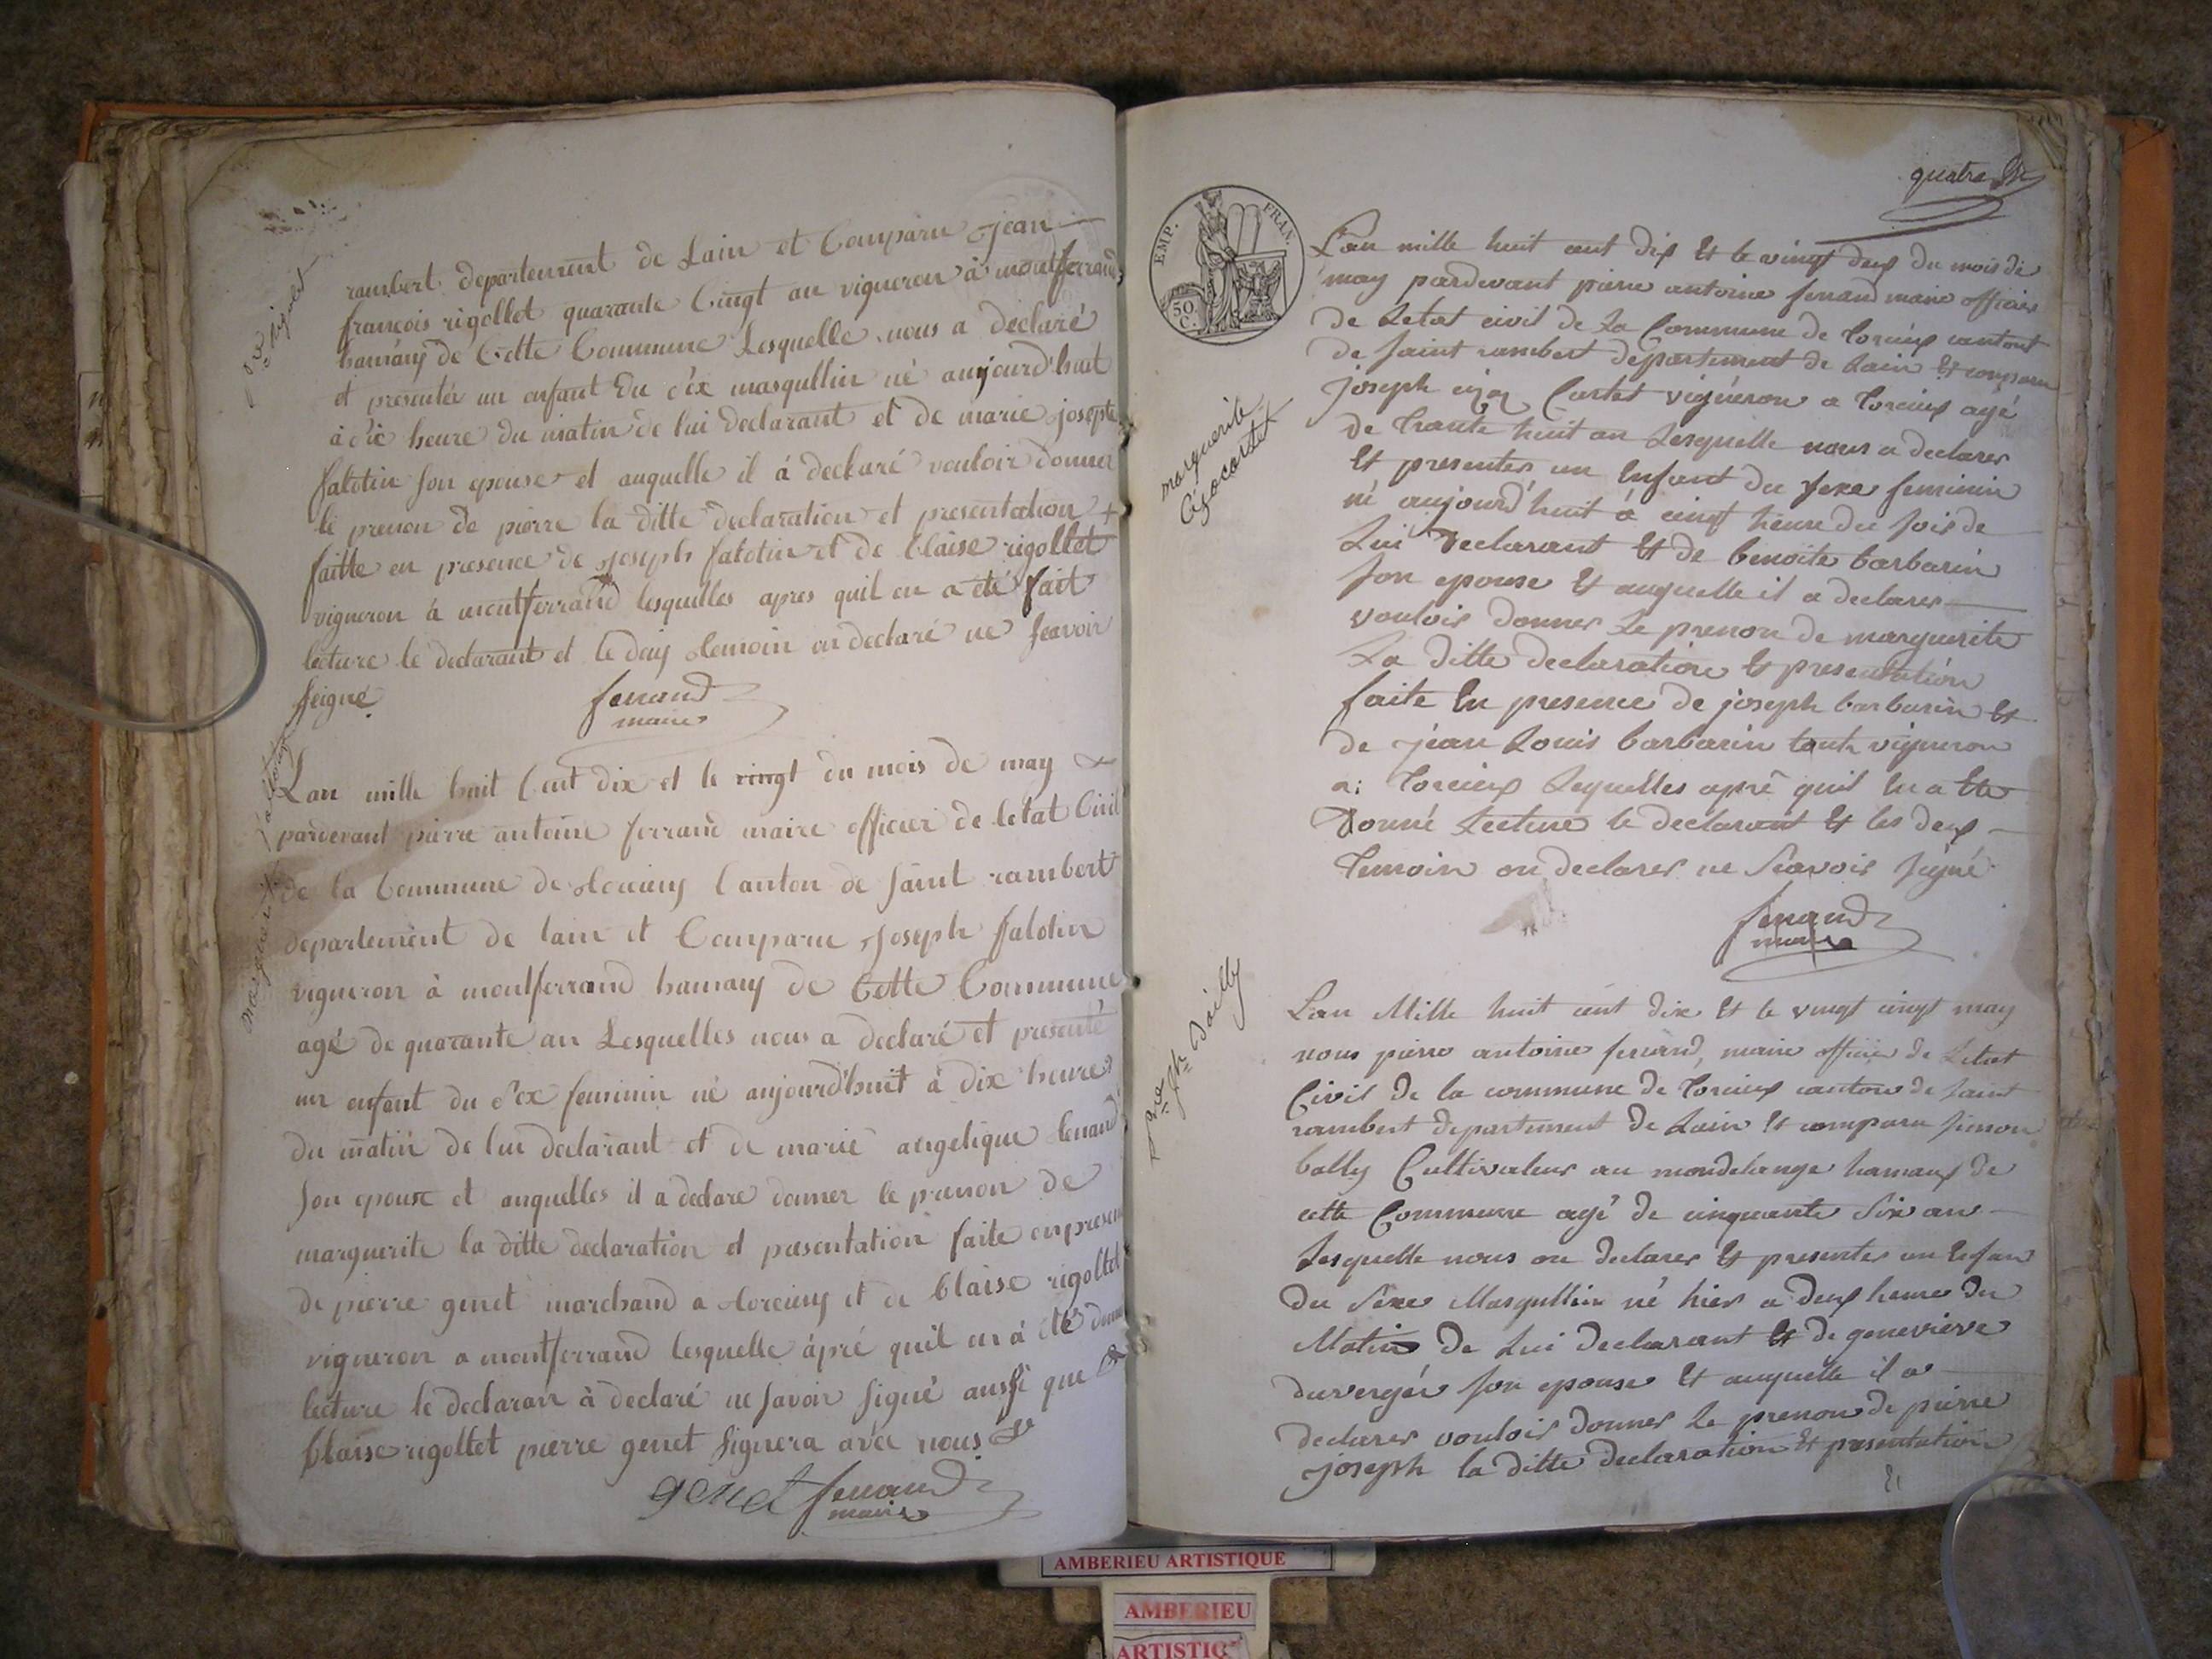 rambert departement de Lain et Comparu jean
françois rigollet quarante Cinqt an vigneron à montferrand
hamaux de Cette Commune Lesquelle nous a declaré
et presentée un enfant du sex masqullin né aujourd'huit
à dix heure du matin de lui declarant et de marie josepte
falotin son epouse et auquelle il á declaré vouloir donner
le prenon de pierre la ditte declaration et presentation +
faitte en presence de joseph falotin et de Claise rigollet
vigneron á montferrand lesquelles apres quil en a été fait
lecture le declarant et le deux temoin on declaré ne seavoir
seigné
ferrand
maire
Lan mille huit Cent dix et le vingt du mois de may
pardevant pierre antoine ferrand maire officier de letat Civil
de la Commune de torcieux Canton de saint rambert
departement de lain et Comparu joseph falotin
vigneron à montferrand hamaux de Cette Commune
agé de quarante an Lesquelles nous a declaré et presenté
un enfent du sex feminin né aujourdhuit à dix heure
du matin de lui declarant et de marie angelique
son epouse et auquelles il a declare donner le prenon de
marguerite la ditte declaration et presentation faite en presen
de pierre genet marchand a torcieux et de blaise rigollet
vigneron a montferrand lesquelle ápré quil en á été donn
lecture le declaran à declaré ne savoir signé aussi que
blaise rigollet pierre genet signera avec nous
genet ferrand
maire
quatre
EMP. FRAN.
50 C.
marguerite
Lan mille huit cent dix Et le vingt deux du mois de
may pardevant pierre antoine ferrand maire officier
de Letat civil de La Commune de torcieux cantont
de saint rambert departement de Lain Et comparu
joseph Cartet vignéron a torcieux agé
de trante huit an Lesquelle nous a declarer
Et presenter un Enfant du sexe feminin
né aujourd'huit á cinqt heure du soir de
Lui declarant Et de benoite barbarin
son epouse Et auquelle il a declarer
vouloir donner Le prenon de marguerite
La ditte declaration Et presentation
faite En presence de joseph barbarin Et
de jean Louis barbarin toute vigneron
a torcieux Lequelles apré quil En a Ete
donné Lecture le declarant Et les deux
temoin on declarer ne Seavoir signé
ferrand
maire
Pre Jph Bailly
Lan Mille huit cent dix Et le vingt cinqt may
nous pierre antoine ferrand, maire officier de Letat
Civil de la commune de torcieux canton de saint
rambert departement de Lain Et comparu simon
bally Cultivateur au mondelange hamaux de
cette Commune agé de cinquante six an
Lesquelle nous on declarer Et presenter un Enfan
du Sexe Masqullin né hier a deux heure du
Matin de Lui declarant Et de genevieve
duvergér son epouse Et auquelle il a
declarer vouloir donner Le prenon de pierre
joseph la ditte declaration Et presentation
AMBERIEU ARTISTIQUE
AMBERIEU
ARTISTIQ